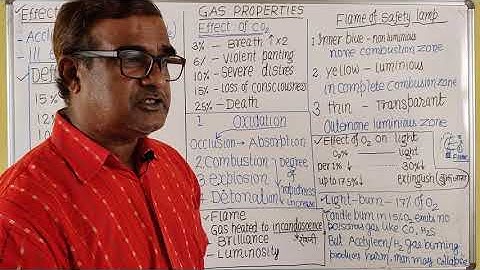 GAS PROPERTIES
Effect
Acc
Ill
Def
15%
12
10
Effect of CO₂
3% - Breath ↑ x2
6% - Violent panting
10% - Severe distres
15% - Loss of consciousness
25% - Death
1 Oxidation
Occlusion → Absorption
2 Combustion
3 explosion
4 Detonation
degree
of
rapidness
increase
Flame
Gas heated to incandascence
- Brilliance
- Luminosity
Flame of Safety lamp
1 Inner blue - non luminious
none combustion zone
2 yellow - luminious
in complete combustion zone
3 thin - Transparant
Outer none luminious zone
Effect of O₂ on light
O₂% —— light
per 1% ↓ 30% ↓
up to 17.5% ↓ extinguish
Light - burn - 17% of O₂
Candle burn in 15% O₂ emits no
poisonous gas like CO, H₂S
But Acetyleen/H₂ gas burning
produces harm, man may collabse